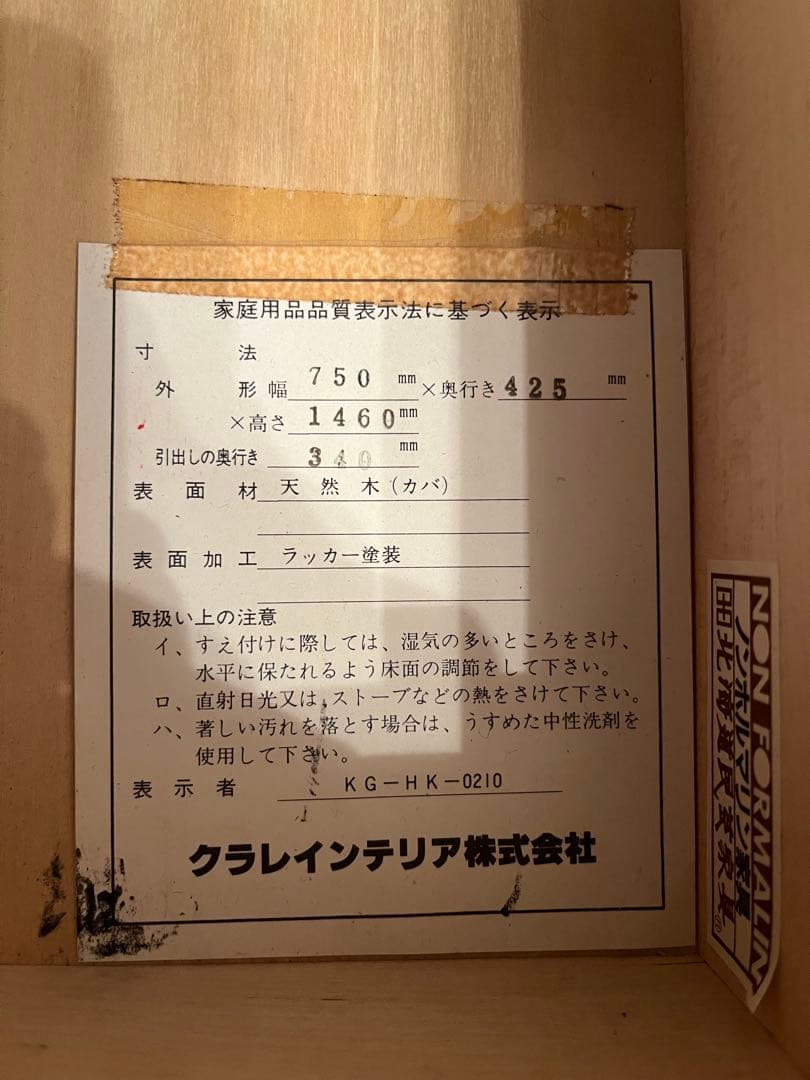 家庭用品品質表示法に基づく表示
寸 法
外 形 幅 750 mm ×奥行き 425 mm
×高さ 1460 mm
引出しの奥行き 340 mm
表 面 材 天 然 木 (カバ)
表 面 加 工 ラッカー塗装
取扱い上の注意
イ、すえ付けに際しては、湿気の多いところをさけ、
水平に保たれるよう床面の調節をして下さい。
ロ、直射日光又は、ストーブなどの熱をさけて下さい。
ハ、著しい汚れを落とす場合は、うすめた中性洗剤を
使用して下さい。
表 示 者 KG-HK-0210
クラレインテリア株式会社
NON FORMALIN
ノンホルマリン家具
北海道民芸家具